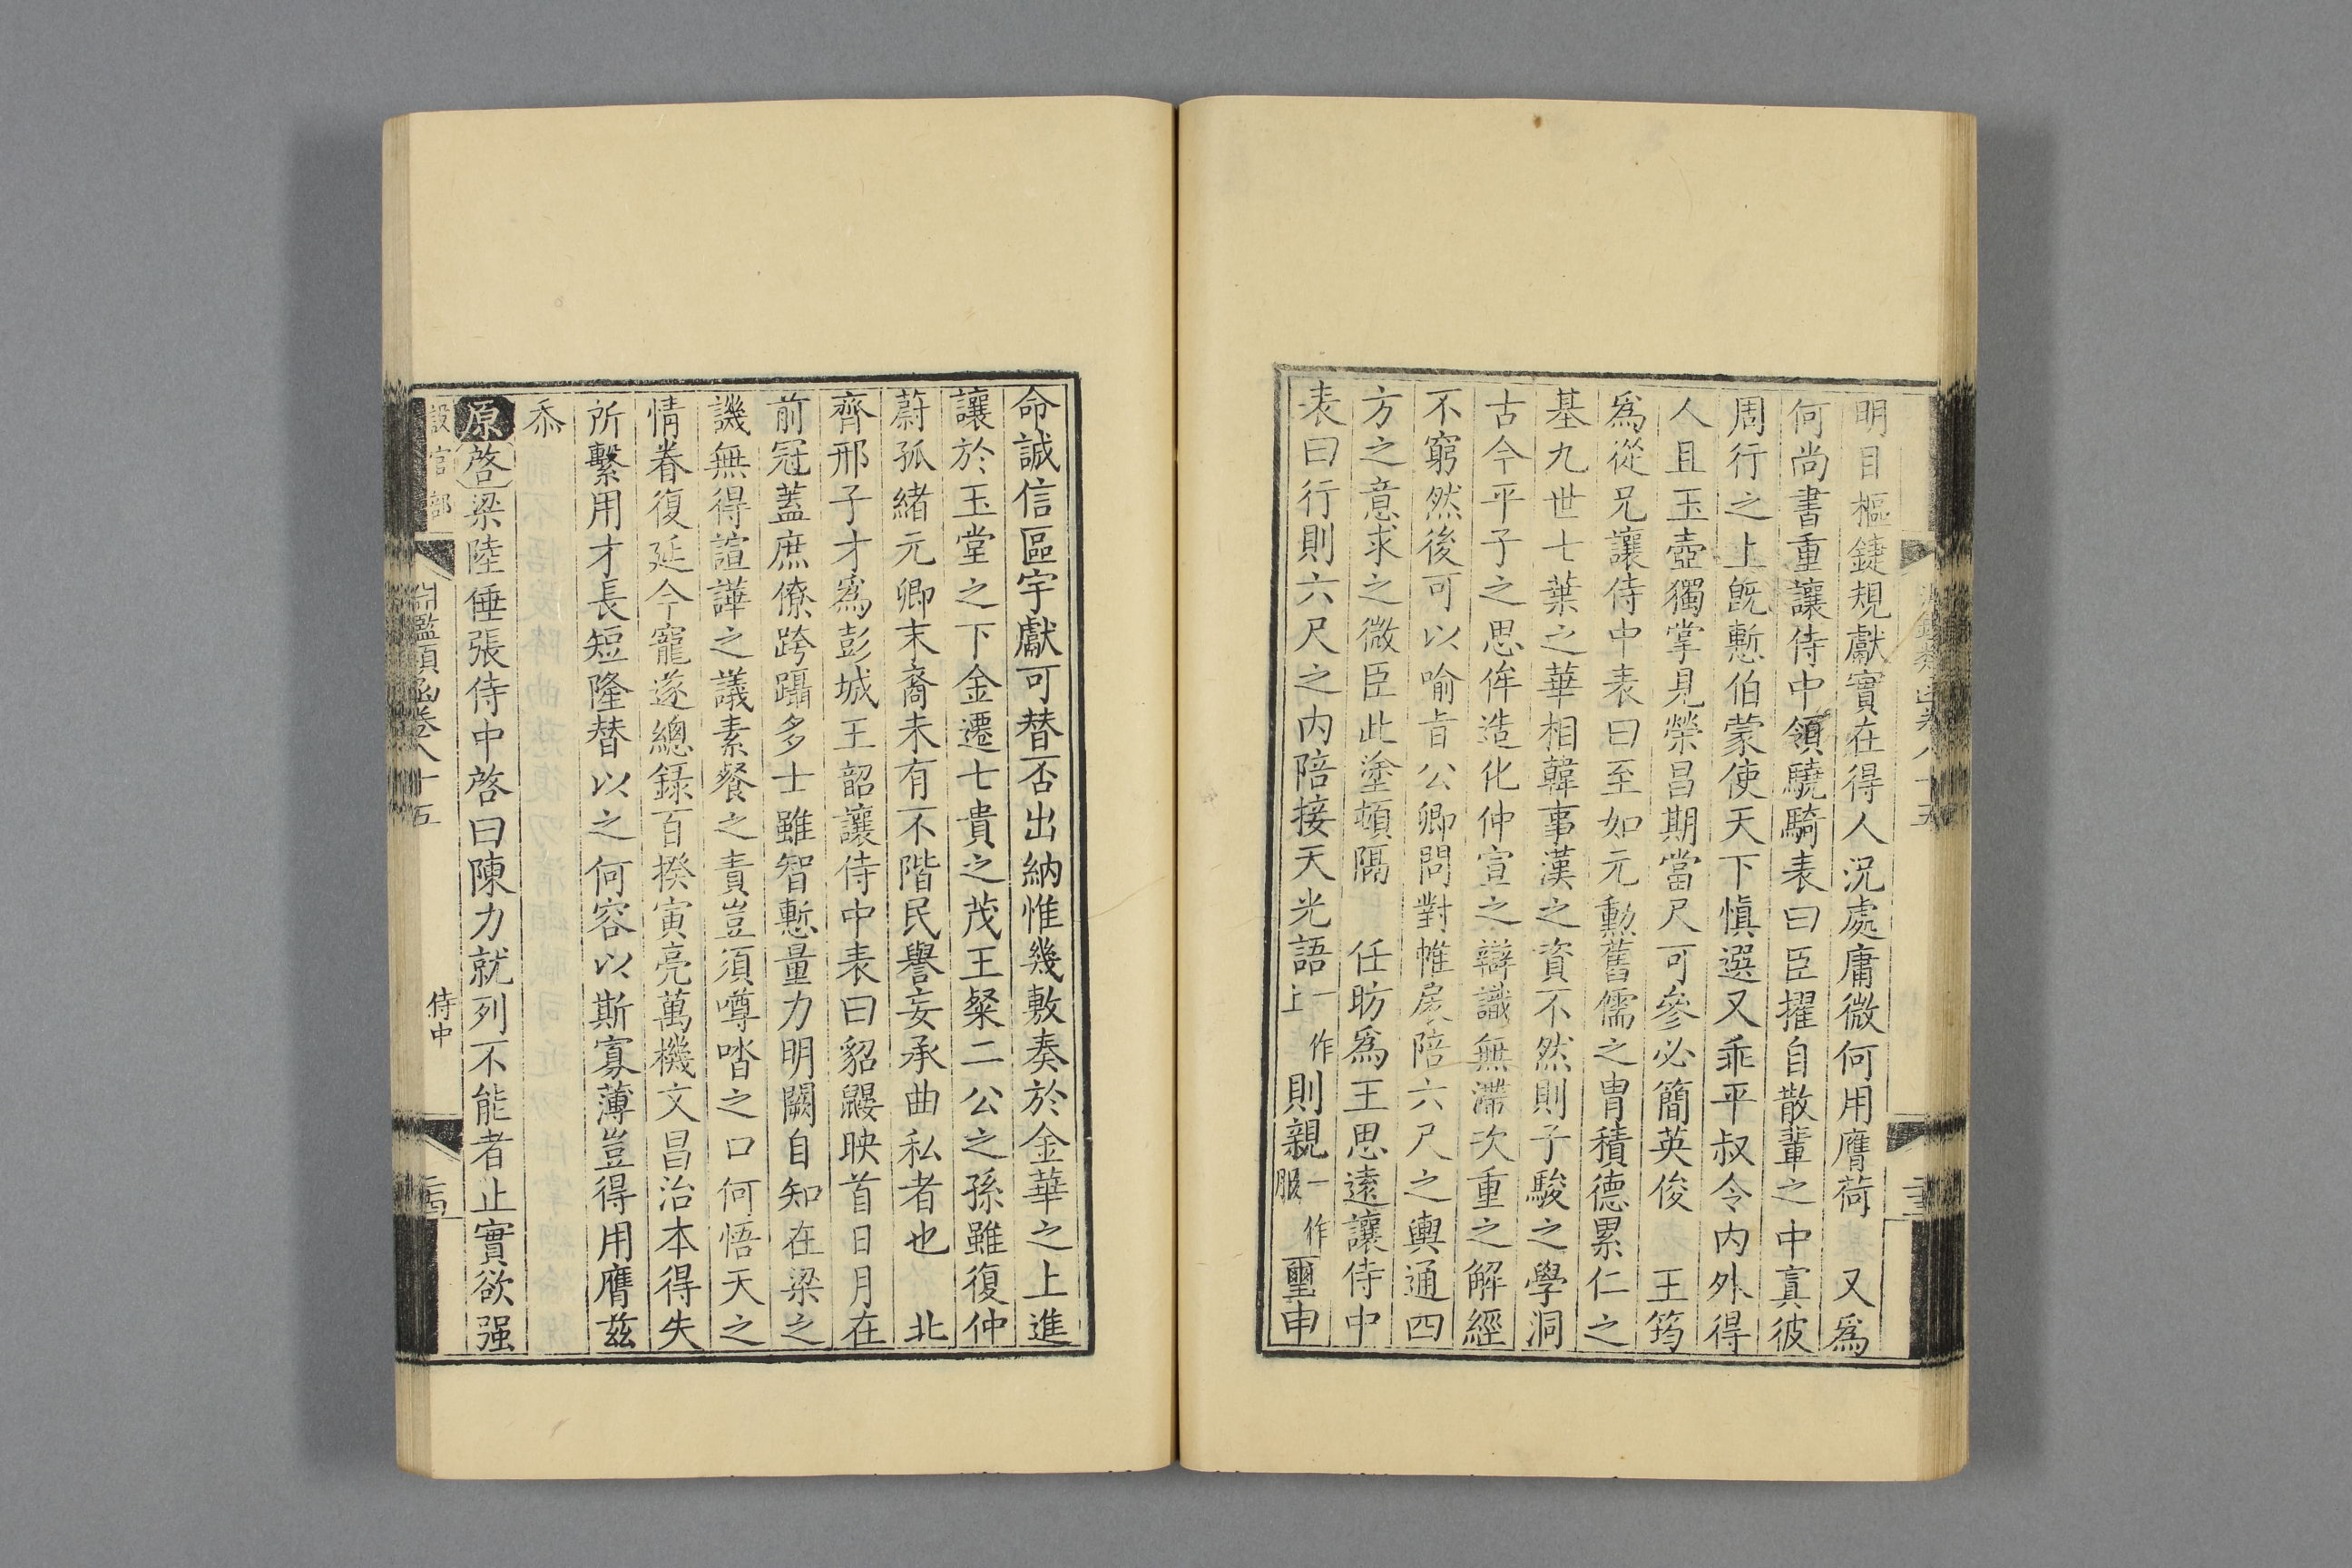 明目樞鍵規獻實在得人況處庸微何用膺荷 又爲
何尚書重讓侍中領驍騎表曰臣擢自散輩之中寘彼
周行之上旣慙伯蒙使天下愼選又乖平叔令内外得
人且玉壺獨掌見榮昌期當尺可參必簡英俊 王筠
爲從兄讓侍中表曰至如元勳舊儒之胄積德累仁之
基九世七葉之華相韓事漢之資不然則子駿之學洞
古今平子之思侔造化仲宣之辯識無滯次重之解經
不窮然後可以喻旨公卿問對帷扆陪六尺之輿通四
方之意求之微臣此塗頓隔 任昉爲王思遠讓侍中
表曰行則六尺之内陪接天光語一作上則親一作服璽申
命誠信區宇獻可替否出納惟幾敷奏於金華之上進
讓於玉堂之下金遷七貴之茂王粲二公之孫雖復仲
蔚孤緒元卿末裔未有不階民譽妄承曲私者也 北
齊邢子才爲彭城王韶讓侍中表曰貂鼹映首日月在
前冠蓋庶僚跨躡多士雖智慙量力明闕自知在梁之
譏無得諠譁之議素餐之責豈須噂喒之口何悟天之
情眷復延今寵遂總錄百揆寅亮萬機文昌治本得失
所繫用才長短隆替以之何容以斯寡薄豈得用膺茲
忝
原啓梁陸倕張侍中啓曰陳力就列不能者止實欲强
設官部 淵鑑類函卷八十五 侍中